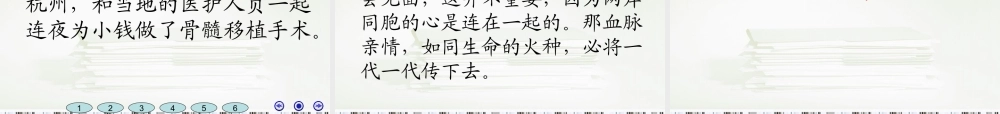 杭州，和当地的医护人员一起
连夜为小钱做了骨髓移植手术。
1 2 3 4 5 6
会见面，这并不重要，因为两岸
同胞的心是连在一起的。那血脉
亲情，如同生命的火种，必将一
代一代传下去。